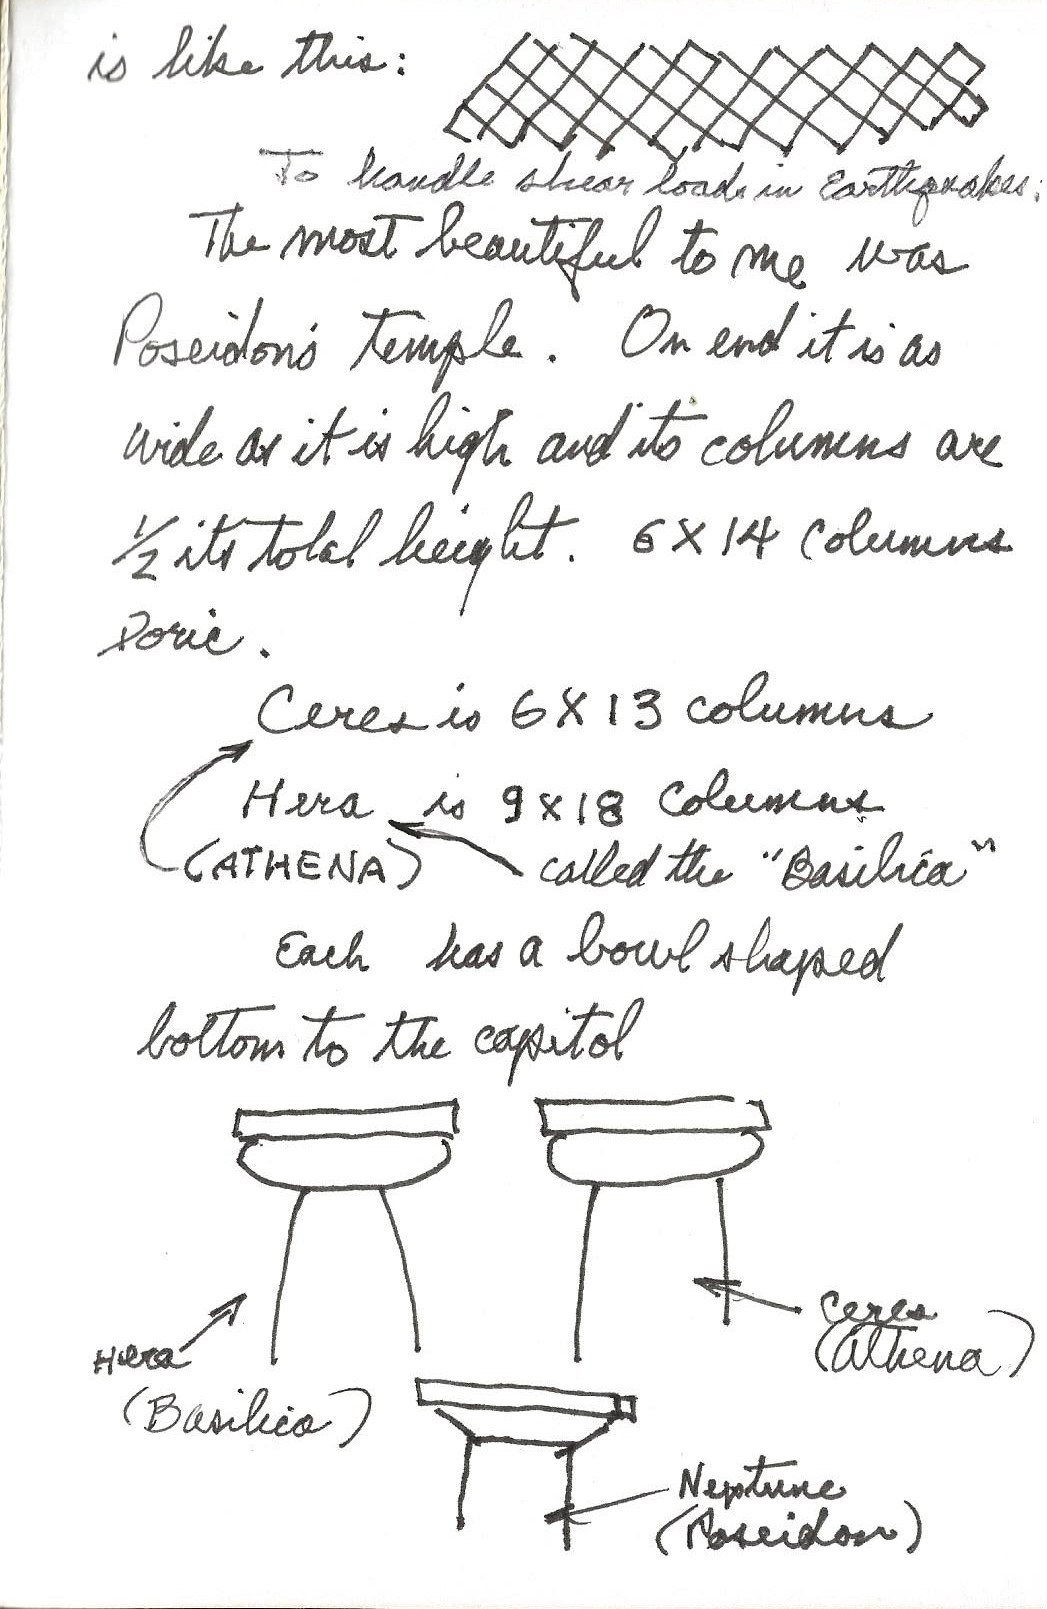 is like this:
To handle shear loads in Earthquakes.
The most beautiful to me was
Poseidon's temple. On end it is as
wide as it is high and its columns are
1/2 its total height. 6 X 14 Columns
Doric.
Ceres is 6 X 13 columns
Hera is 9 X 18 Columns
(ATHENA) called the "Basilica"
Each has a bowl shaped
bottom to the capitol
Ceres
(Athena)
Hera
(Basilica)
Neptune
(Poseidon)